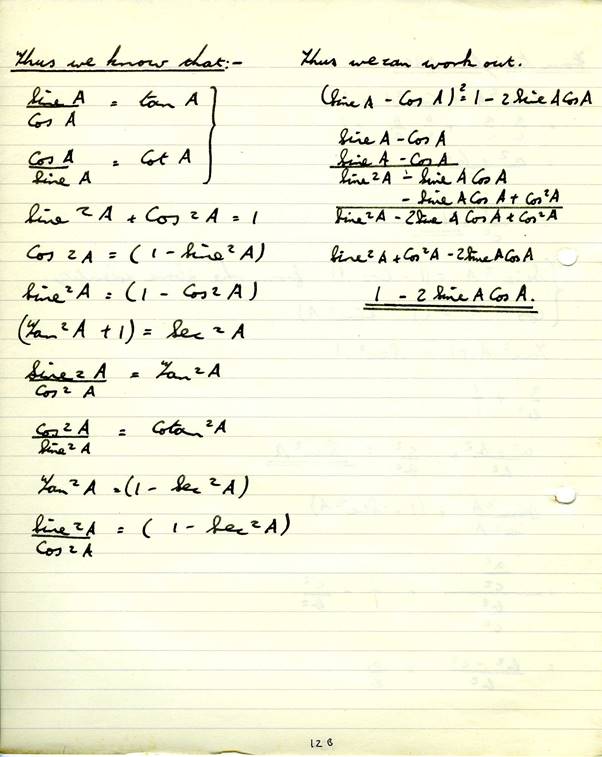 Thus we know that:-
Sine A / Cos A = tan A
Cos A / Sine A = Cot A
Sine ²A + Cos ²A = 1
Cos ²A = (1 - Sine ²A)
Sine ²A = (1 - Cos ²A)
(Tan ²A + 1) = Sec ²A
Sine ²A / Cos ² A = Tan ²A
Cos ²A / Sine ²A = Cotan ²A
Tan ²A = (1 - Sec ²A)
Sine ²A / Cos ²A = (1 - Sec ²A)
Thus we can work out.
(Sine A - Cos A)² = 1 - 2 Sine A Cos A
Sine A - Cos A
Sine A - Cos A
Sine ²A - Sine A Cos A
- Sine A Cos A + Cos ²A
Sine ²A - 2 Sine A Cos A + Cos ²A
Sine ²A + Cos ²A - 2 Sine A Cos A
1 - 2 Sine A Cos A.
12 B